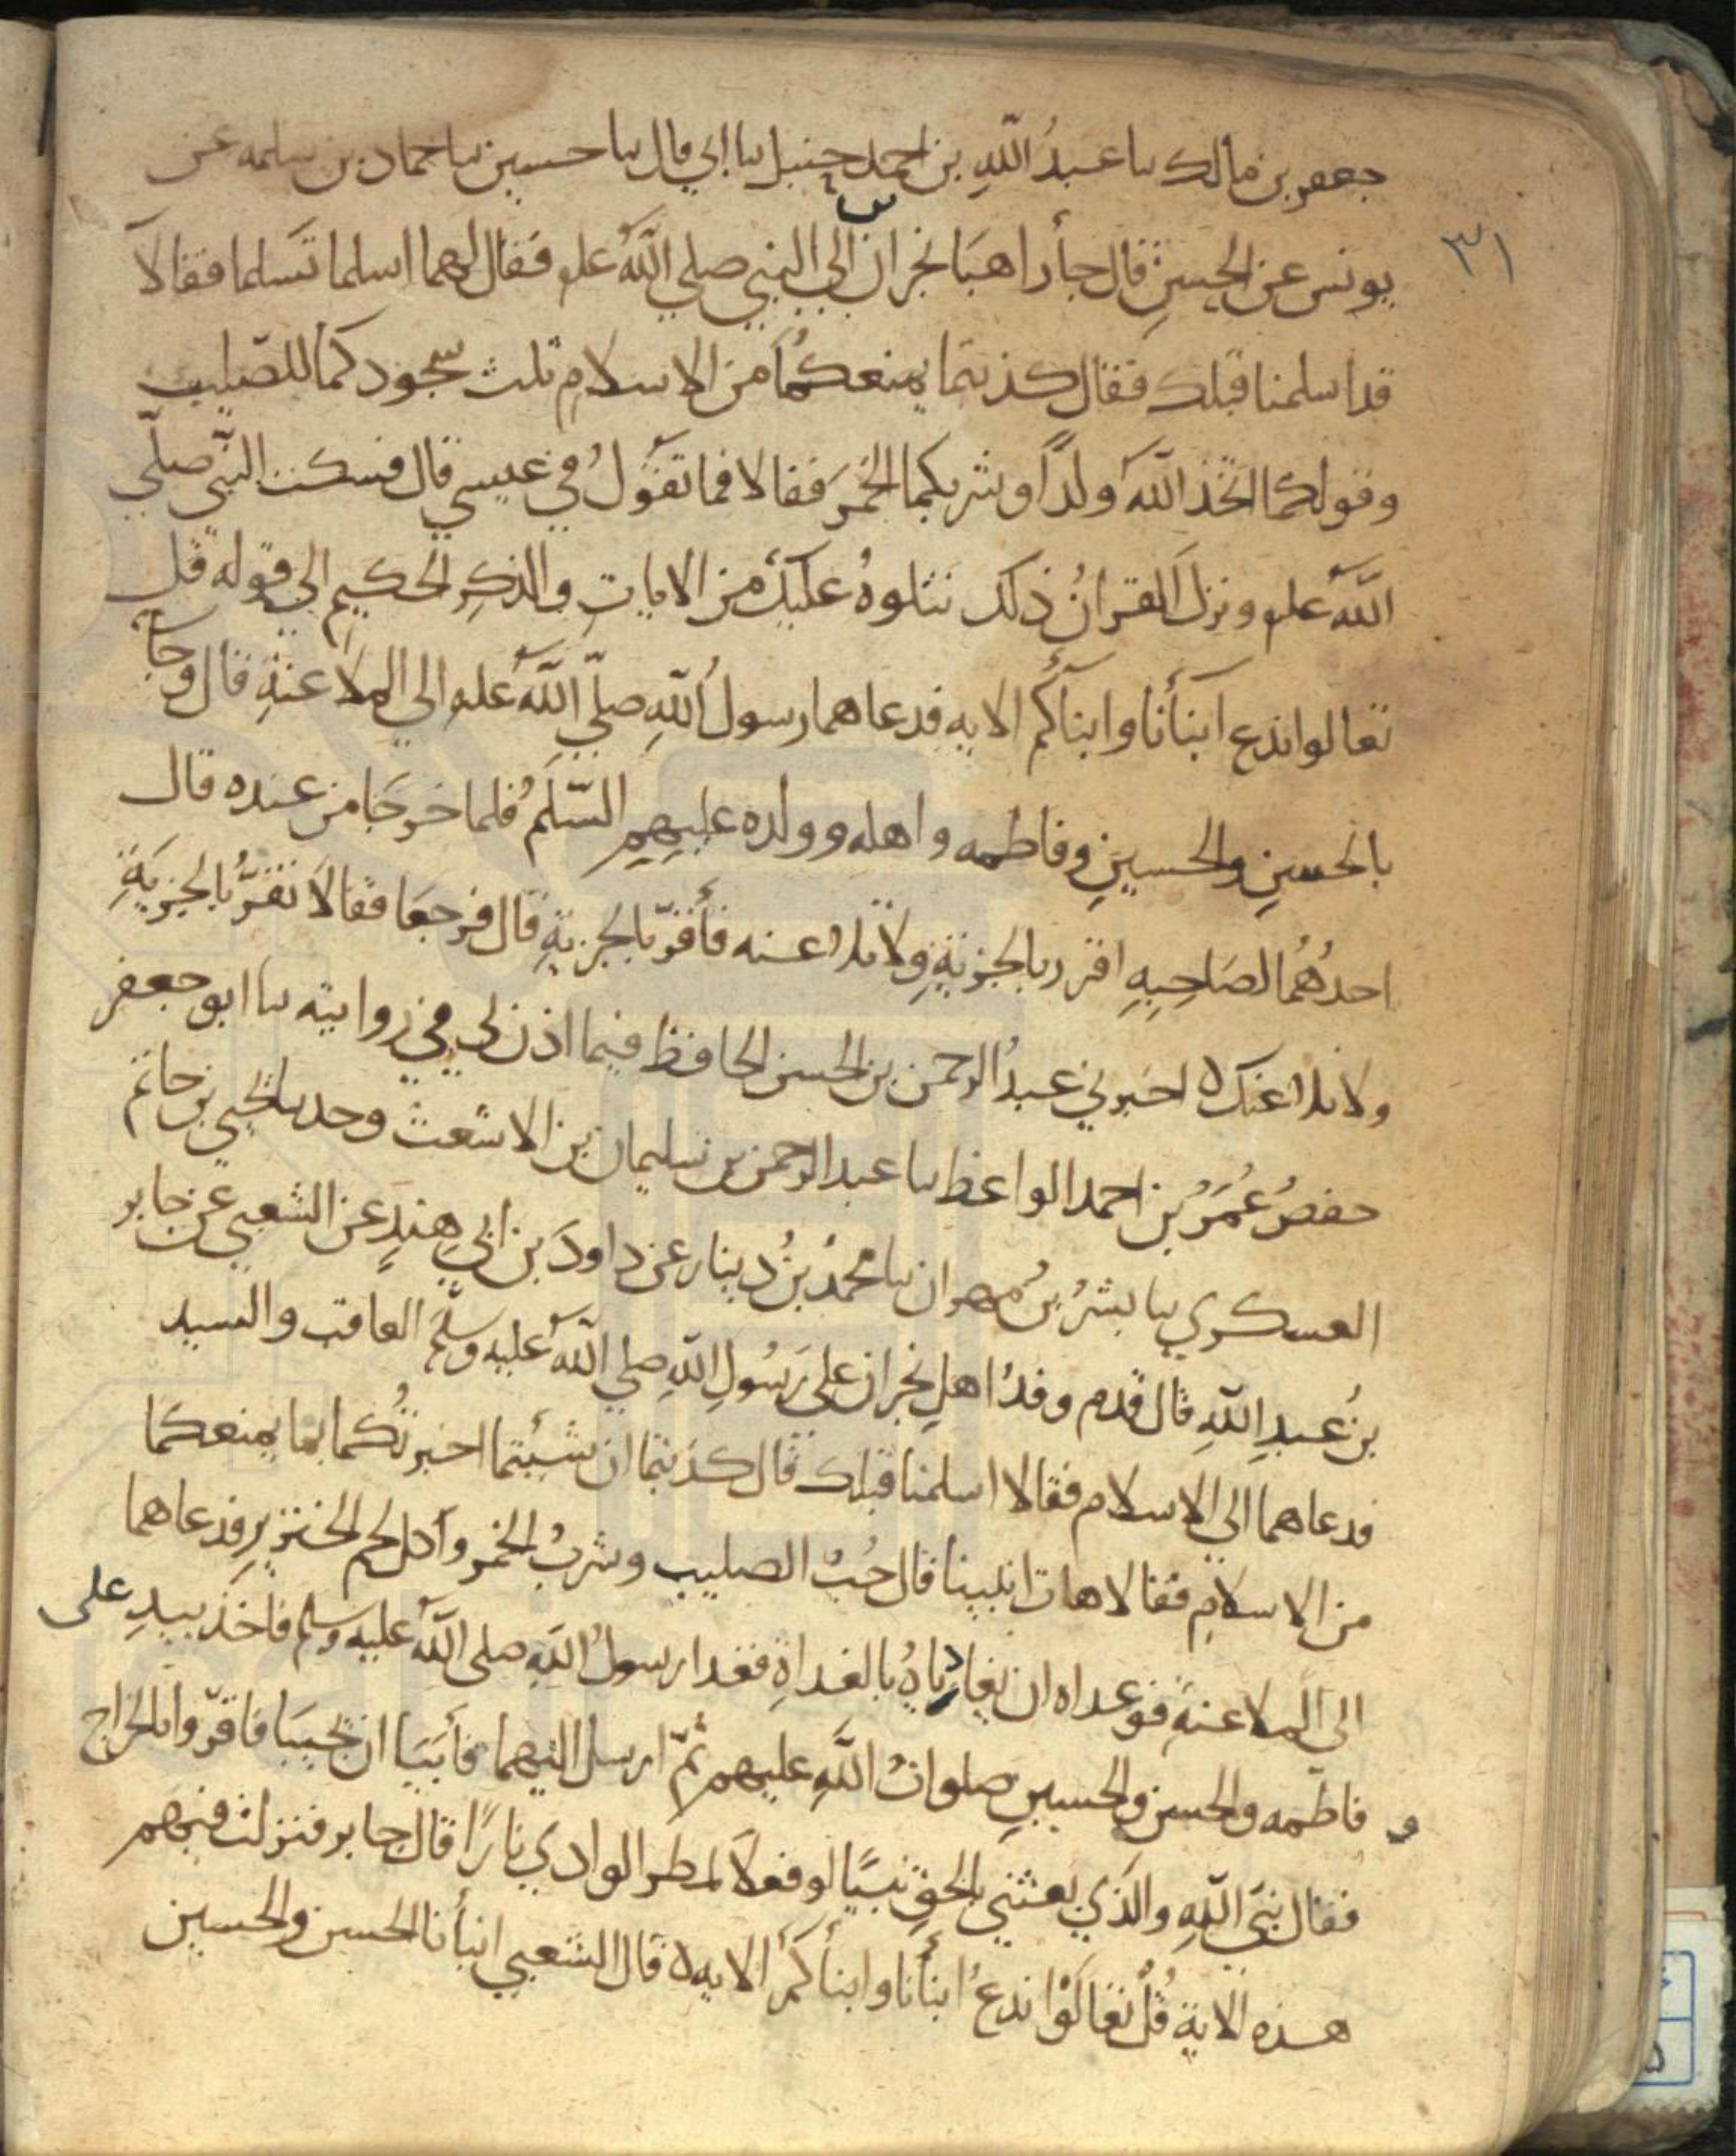 جعفر بن مالك ىىا عبدُ اللّهِ بن احمد حنبل ىىا ابي قال ىىا حسين ىىا حماد بن سلمه عن
بن
٣١
يونس عن الحسنِ قال جأ راهبَا نجران الي النبي صلي اللّهُ علىه فقال لهما اسلما تَسلما فقالا
قد اسلمنا قبلك فقال كذبتما يمنعكُما من الاسلامِ ثلث سجودكما للصّليب
وقولكما اتخذ اللّهُ ولدًا وشربكما الخمرَ فقالا فما تقولُ في عيسي قال فسكت النبّي صلّي
اللّهُ علىه ونزل القرانُ ذلك نتلوهُ عليكَ من الاياتِ والذكرِ الحكيمِ الي قوله قل
تعالوا ندع ابنأنا وابنأكم الايه فدعاهما رسولُ اللّهِ صلّي اللّهُ علىه الي الملاعنةِ قال وجأ
بالحسنِ والحسينِ وفاطمه واهله وولده عليهم السّلمُ فلما خرجَا من عنده قال
احدُهُما لصَاحِبِهِ اقرر بالجزيةِ ولا تلاعنه فأقرّ بالجزيةِ قال فرجعَا فقالا نقرُّ بالجزيَةِ
ولا نلاعنك ه اخبرني عبدُ الرحمن بن الحسن الحافظ فيما اذن لي في روايته ىىا ابو جعفر
حفصُ عُمَرُ بن احمد الواعظ ىىا عبد الرحمن بن سليمان بن الاشعث وحدىىا يحيي بن حاتم
العسكري ىىا بشرُ بنُ مهران ىىا محمدُ بنُ دينار عن داودَ بن ابي هندٍ عن الشعبي عن جابر
بنُ عبدِ اللّهِ قال قدم وفدُ اهلِ نجران علي رَسُولِ اللّهِ صلي اللّهُ عليه وسلّم العاقب والسيد
فدعاهما الي الاسلام فقالا اسلمنا قبلك قال كذبتما ان شئتما اخبرتُكما بما يمنعكما
من الاسلامِ فقالا هات انبينا قال حُبُ الصليب وشربُ الخمر واكل لحم الخنزيرِ فدعاهما
الي الملاعنةِ فوعداه ان يغادياهُ بالغداةِ فغدا رسولُ اللّهِ صلي اللّهُ عليه وسلم فاخذ بيدِ على
و فاطمه والحسن والحسينِ صلواتُ اللّهِ عليهم ثُمّ ارسل اليهما فأبيَا ان يجيبَا فاقرّوا بالخراج
فقال نبيّ اللّهِ والّذي بعثني بالحقِ نبيًا لو فعلا لمطر الوادي نارًا قال جابر فنزلت فيهم
هذه الاية قُلْ تعالَوْا ندعُ ابنأنا وابنأكمْ الايه ه قال الشعبي ابنأنا الحسن والحسين